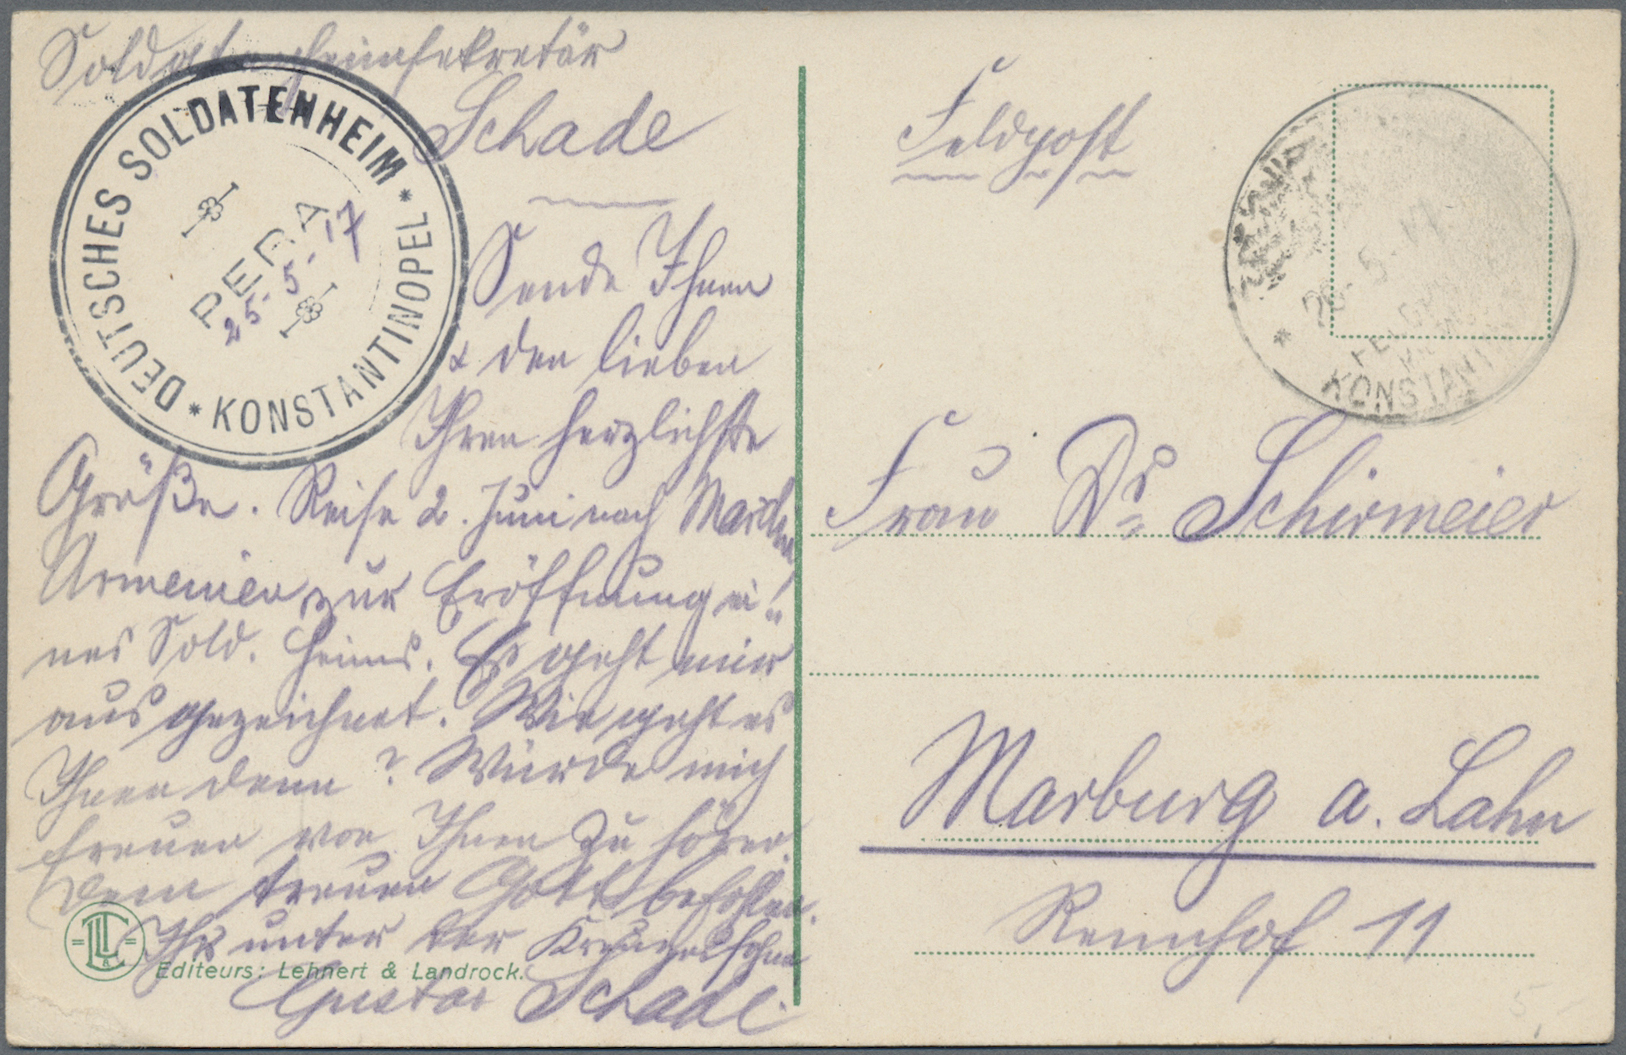 Soldatenheimsekretär
Schade
DEUTSCHES SOLDATENHEIM
* KONSTANTINOPEL *
PERA
25-5-17
Sende Ihnen
& den lieben
Ihren herzlichste
Grüße. Reise 2. Juni nach
Armenien zur Eröffnung ei=
nes Sold. Heims. Es geht mir
ausgezeichnet. Wie geht es
Ihnen denn? Würde mich
freuen von Ihnen zu hören.
Dem treuen Gott befohlen.
Ihr unter der Kreuzesfahne
Gustav Schade.
LL &
Editeurs: Lehnert & Landrock.
Feldpost
26-5-17
KONSTANTI
Frau Dr Schirmeier
Marburg a. Lahn
Rennhof 11
5,-